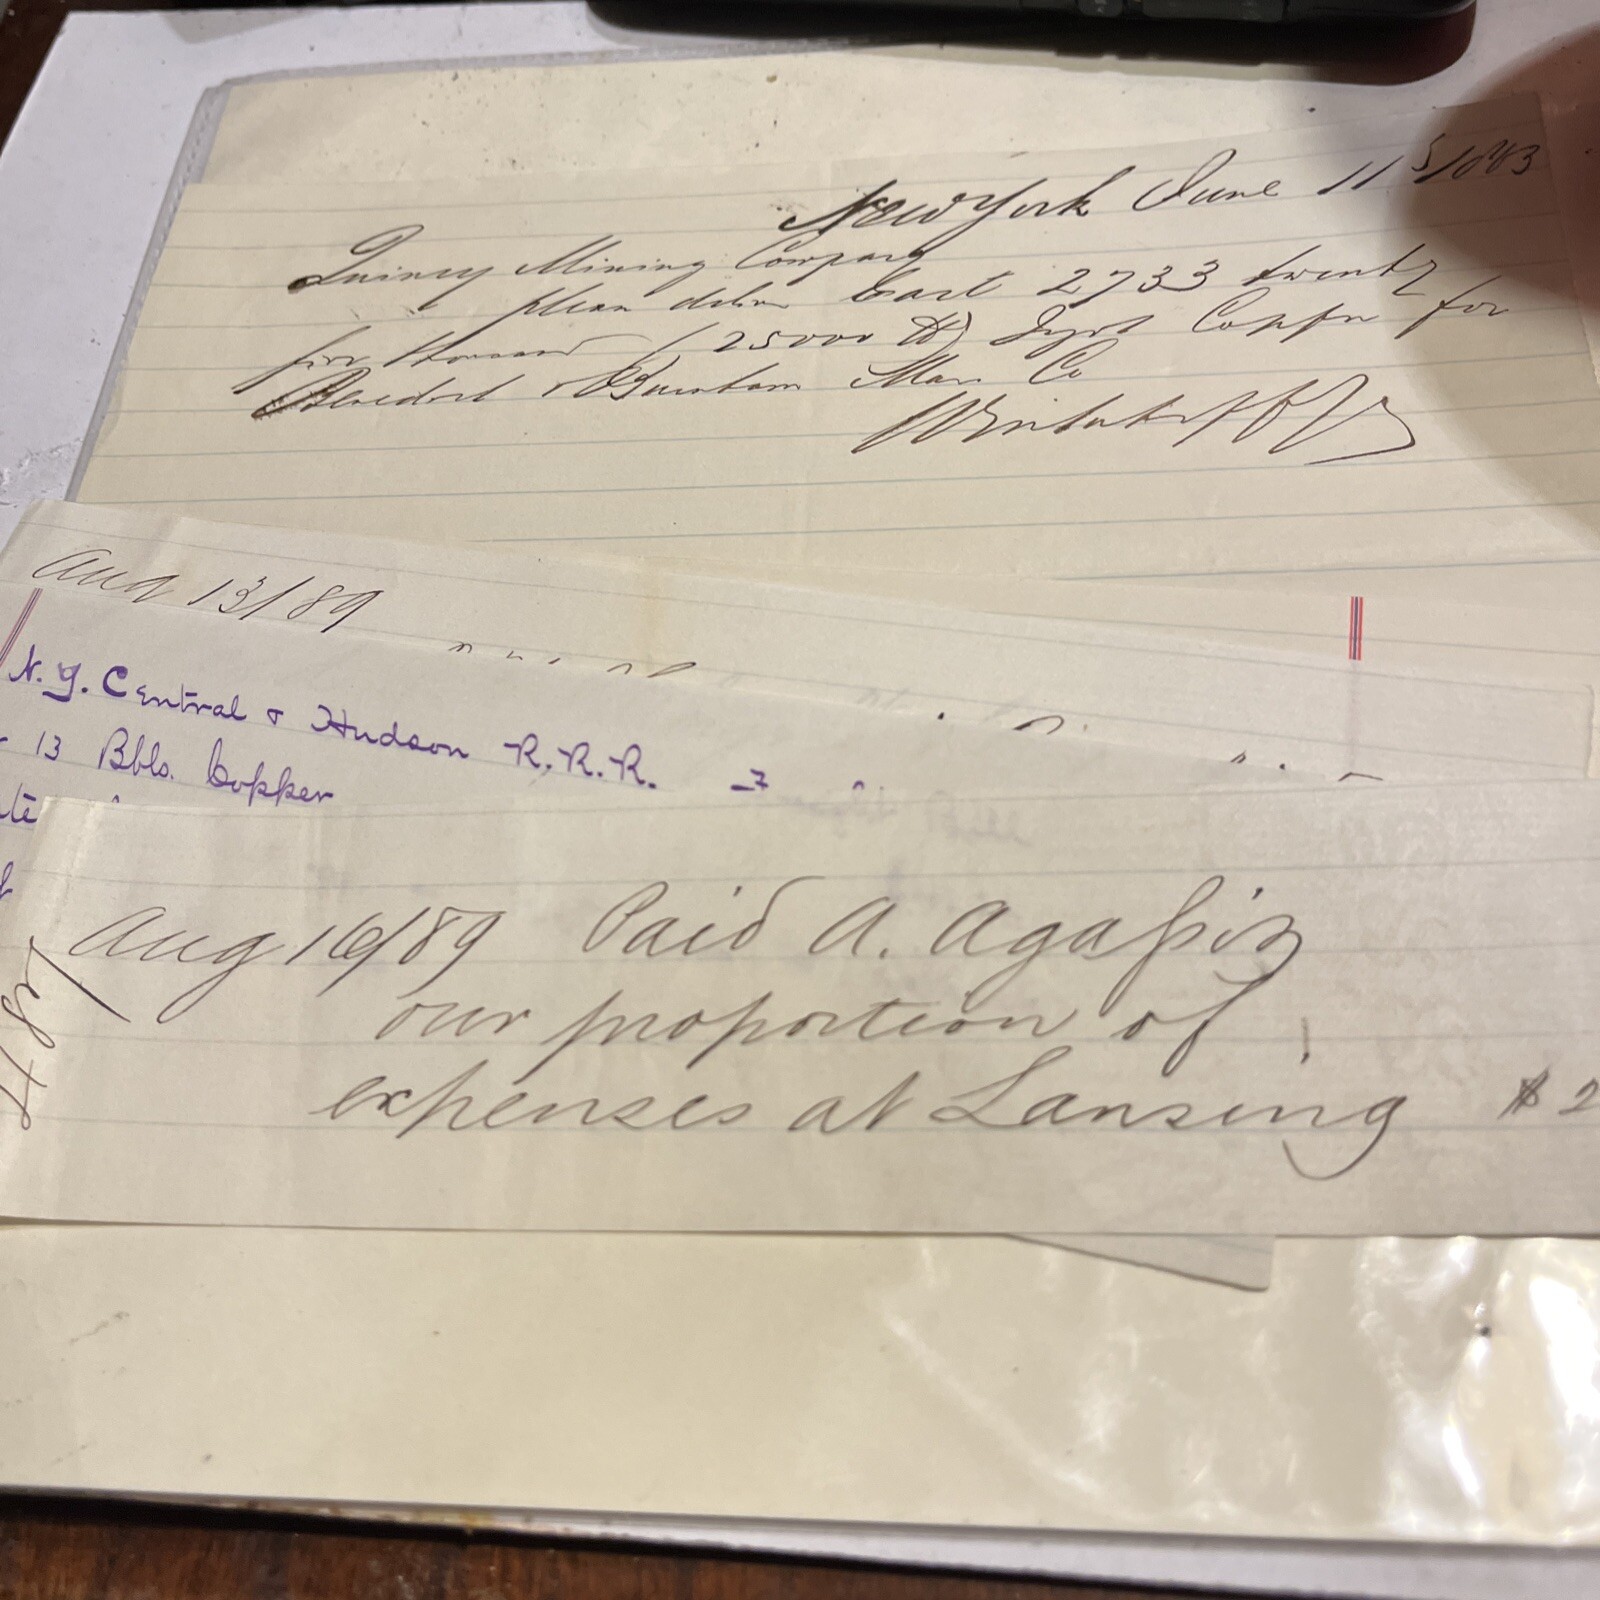 New York June 11 1883
Quincy Mining Company
please deliver Cart 2733 twenty
five thousand (25000 lb) Ingot Copper for
Benedict & Burnham Man Co
Aug 13/89
N.Y. Central & Hudson R.R.R.
13 Bbls. Copper
487
Aug 16/89 Paid A. Agassiz
our proportion of
expenses at Lansing $2